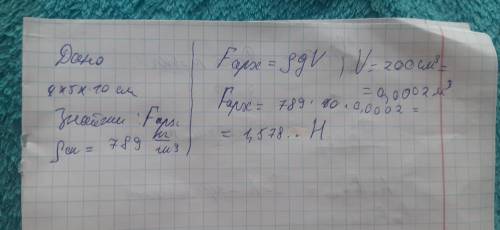 Дано
4x5x10 см
Знайти: Fарх.
ρсп = 789 кг/м³
Fарх = ρgV ; V = 200 см³ =
= 0,0002 м³
Fарх = 789 · 10 · 0,0002 =
= 1,578 .. Н